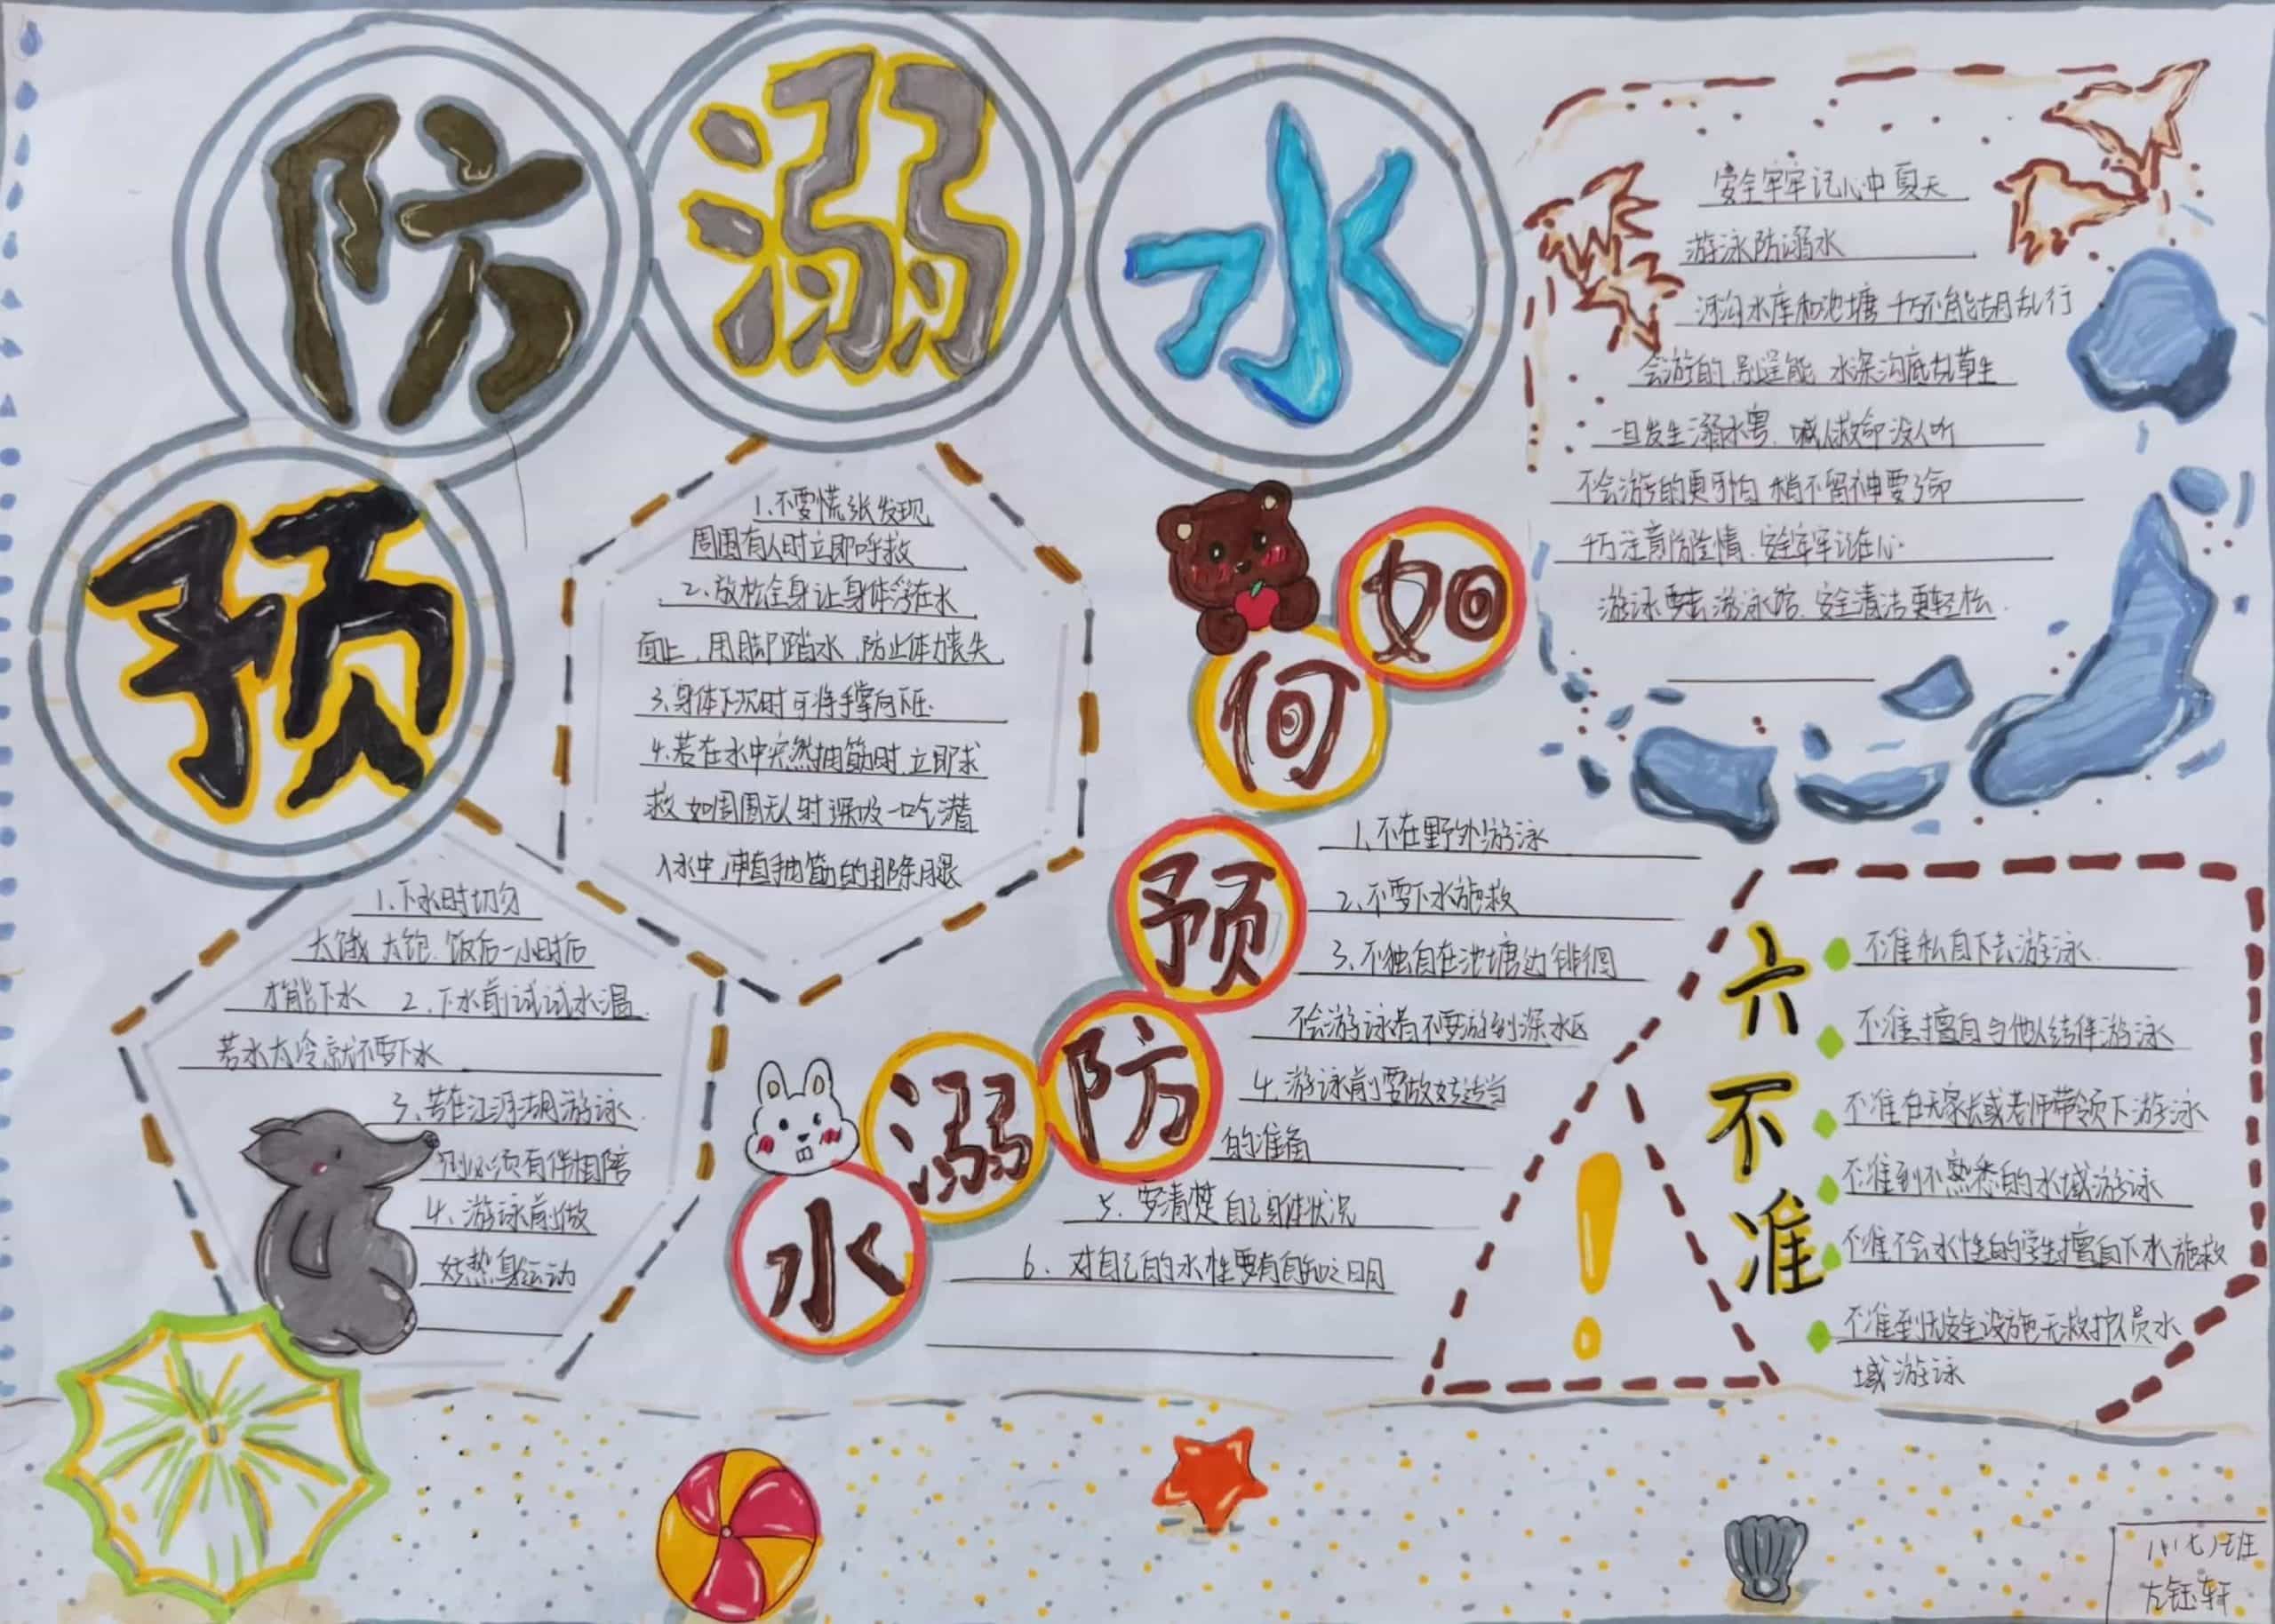 预防溺水
1.不要慌张发现
周围有人时立即呼救
2.放松全身让身体浮在水
面上,用脚踏水,防止体力丧失
3.身体下沉时可将手掌向下压.
4.若在水中突然抽筋时,立即求
救 如周围无人时深吸一口气潜
入水中,伸直抽筋的那条腿
1.下水时切勿
太饿 太饱. 饭后一小时后
才能下水 2.下水前试试水温
若水太冷就不要下水
3、若在江河湖游泳.
则必须有伴相陪
4、游泳前做
好热身运动
如何预防溺水
1、不在野外游泳
2、不要下水施救
3、不独自在池塘边徘徊
不会游泳者不要游到深水区
4.游泳前要做好适当
的准备
5.要清楚自己身体状况
6、对自己的水性要有自知之明
安全牢牢记心中夏天
游泳防溺水
河沟水库和池塘 千万不能胡乱行
会游的 别逞能 水深沟底乱草生
一旦发生溺水事. 喊人救命没人听
不会游的更可怕 稍不留神要了命
千万注意防险情. 安全牢牢记在心.
游泳要去游泳馆. 安全清洁更轻松.
六不准
不准私自下去游泳.
不准擅自与他人结伴游泳
不准在无家长或老师带领下游泳
不准到不熟悉的水域游泳
不准不会水性的学生擅自下水施救
不准到无安全设施无救护人员水
域游泳
八(七)班
左钰轩